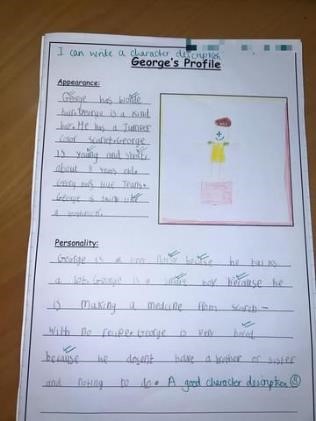 I can write a character description
George's Profile
Appearance:
George has
hair. George is a kind
boy. He has a Jumper
color scarlet. George
is young and
about 8 years old.
has blue Jeans.
George is
a
Personality:
George is a very because he talks
a lot. George is a boy because he
is making a medicine from scarch-
with no recipe. George is very bored
because he dosent have a brother or sister
and noting to do. A good character description